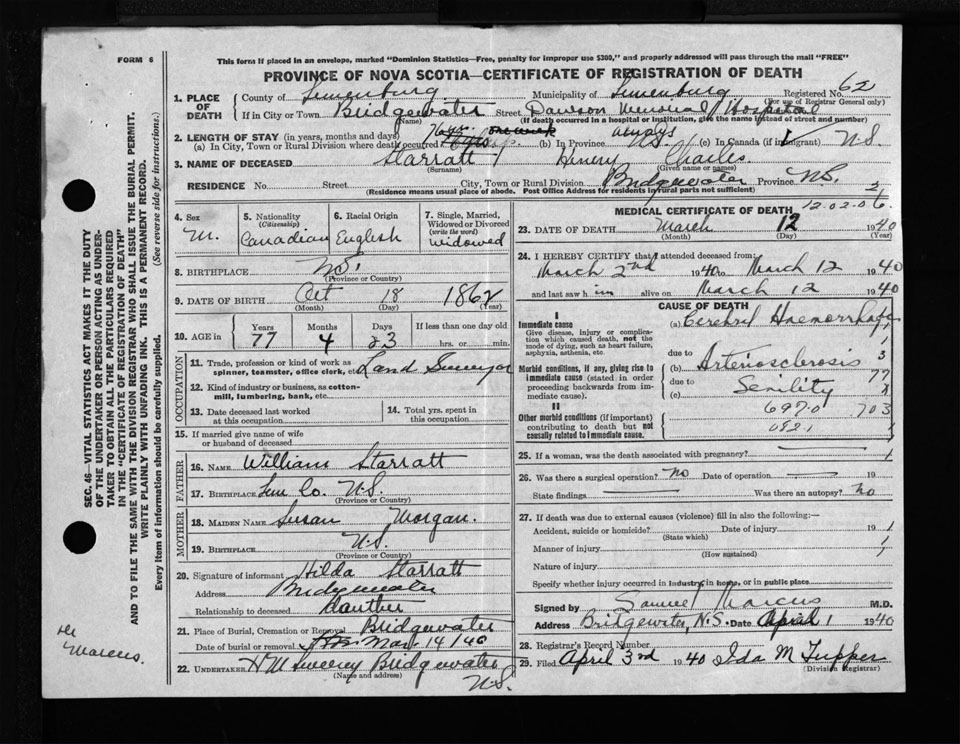 FORM 6
This form if placed in an envelope, marked "Dominion Statistics—Free, penalty for improper use $300," and properly addressed will pass through the mail "FREE"
PROVINCE OF NOVA SCOTIA—CERTIFICATE OF REGISTRATION OF DEATH
62
1. PLACE OF DEATH County of Lunenburg Municipality of Lunenburg Registered No.
(For use of Registrar General only)
If in City or Town Bridgewater Street Dawson Memorial Hospital
(Name) (If death occurred in a hospital or institution, give the name instead of street and number)
2. LENGTH OF STAY (in years, months and days)
(a) In City, Town or Rural Division where death occurred (b) In Province N.S. always (c) In Canada (if immigrant) N.S.
3. NAME OF DECEASED Starratt Henery Charles
(Surname) (Given name or names)
RESIDENCE No. Street City, Town or Rural Division Bridgewater Province N.S.
(Residence means usual place of abode. Post Office Address for residents in rural parts not sufficient)
12.02.06
4. Sex M.
5. Nationality (Citizenship) Canadian
6. Racial Origin English
7. Single, Married, Widowed or Divorced (write the word) Widowed
8. BIRTHPLACE N.S.
(Province or Country)
9. DATE OF BIRTH Oct 18 1862
(Month) (Day) (Year)
10. AGE in Years 77 Months 4 Days 23 If less than one day old hrs. or min.
OCCUPATION
11. Trade, profession or kind of work as spinner, teamster, office clerk, etc. Land Surveyor
12. Kind of industry or business, as cotton-mill, lumbering, bank, etc.
13. Date deceased last worked at this occupation
14. Total yrs. spent in this occupation
15. If married give name of wife or husband of deceased
FATHER
16. NAME William Starratt
17. BIRTHPLACE Lun Co. N.S.
(Province or Country)
MOTHER
18. MAIDEN NAME Susan Morgan.
19. BIRTHPLACE N.S.
(Province or Country)
20. Signature of informant Hilda Starratt
Address Bridgewater
Relationship to deceased dauther
21. Place of Burial, Cremation or Removal Bridgewater
Date of burial or removal Mar 14/40
22. UNDERTAKER Sweeny Bridgewater
(Name and address) N.S.
MEDICAL CERTIFICATE OF DEATH
23. DATE OF DEATH March 12 1940
(Month) (Day) (Year)
24. I HEREBY CERTIFY that I attended deceased from:
March 2nd 1940 to March 12 1940
and last saw him alive on March 12 1940
CAUSE OF DEATH
I
Immediate cause
Give disease, injury or complication which caused death, not the mode of dying, such as heart failure, asphyxia, asthenia, etc
(a) Cerebral Haemorrhage
due to
Morbid conditions, if any, giving rise to immediate cause (stated in order proceeding backwards from immediate cause).
(b) Arteriosclerosis 3
due to
(c) Senility 77
II
Other morbid conditions (if important) contributing to death but not causally related to immediate cause.
697.0 703
082.1
25. If a woman, was the death associated with pregnancy?
26. Was there a surgical operation? no Date of operation 19
State findings Was there an autopsy? no
27. If death was due to external causes (violence) fill in also the following:—
Accident, suicide or homicide? Date of injury 19
(State which)
Manner of injury
(How sustained)
Nature of injury
Specify whether injury occurred in industry, in home, or in public place
Signed by Samuel Marcus M.D.
Address Bridgewater, N.S. Date April 1 1940
28. Registrar's Record Number
29. Filed April 3rd 1940 Ida M Tupper
(Division Registrar)
SEC. 46—VITAL STATISTICS ACT MAKES IT THE DUTY
OF THE UNDERTAKER OR PERSON ACTING AS UNDER-
TAKER TO OBTAIN ALL THE PARTICULARS REQUIRED
IN THE "CERTIFICATE OF REGISTRATION OF DEATH"
AND TO FILE THE SAME WITH THE DIVISION REGISTRAR WHO SHALL ISSUE THE BURIAL PERMIT.
WRITE PLAINLY WITH UNFADING INK. THIS IS A PERMANENT RECORD.
Every item of information should be carefully supplied. (See reverse side for instructions.)
Marcus.